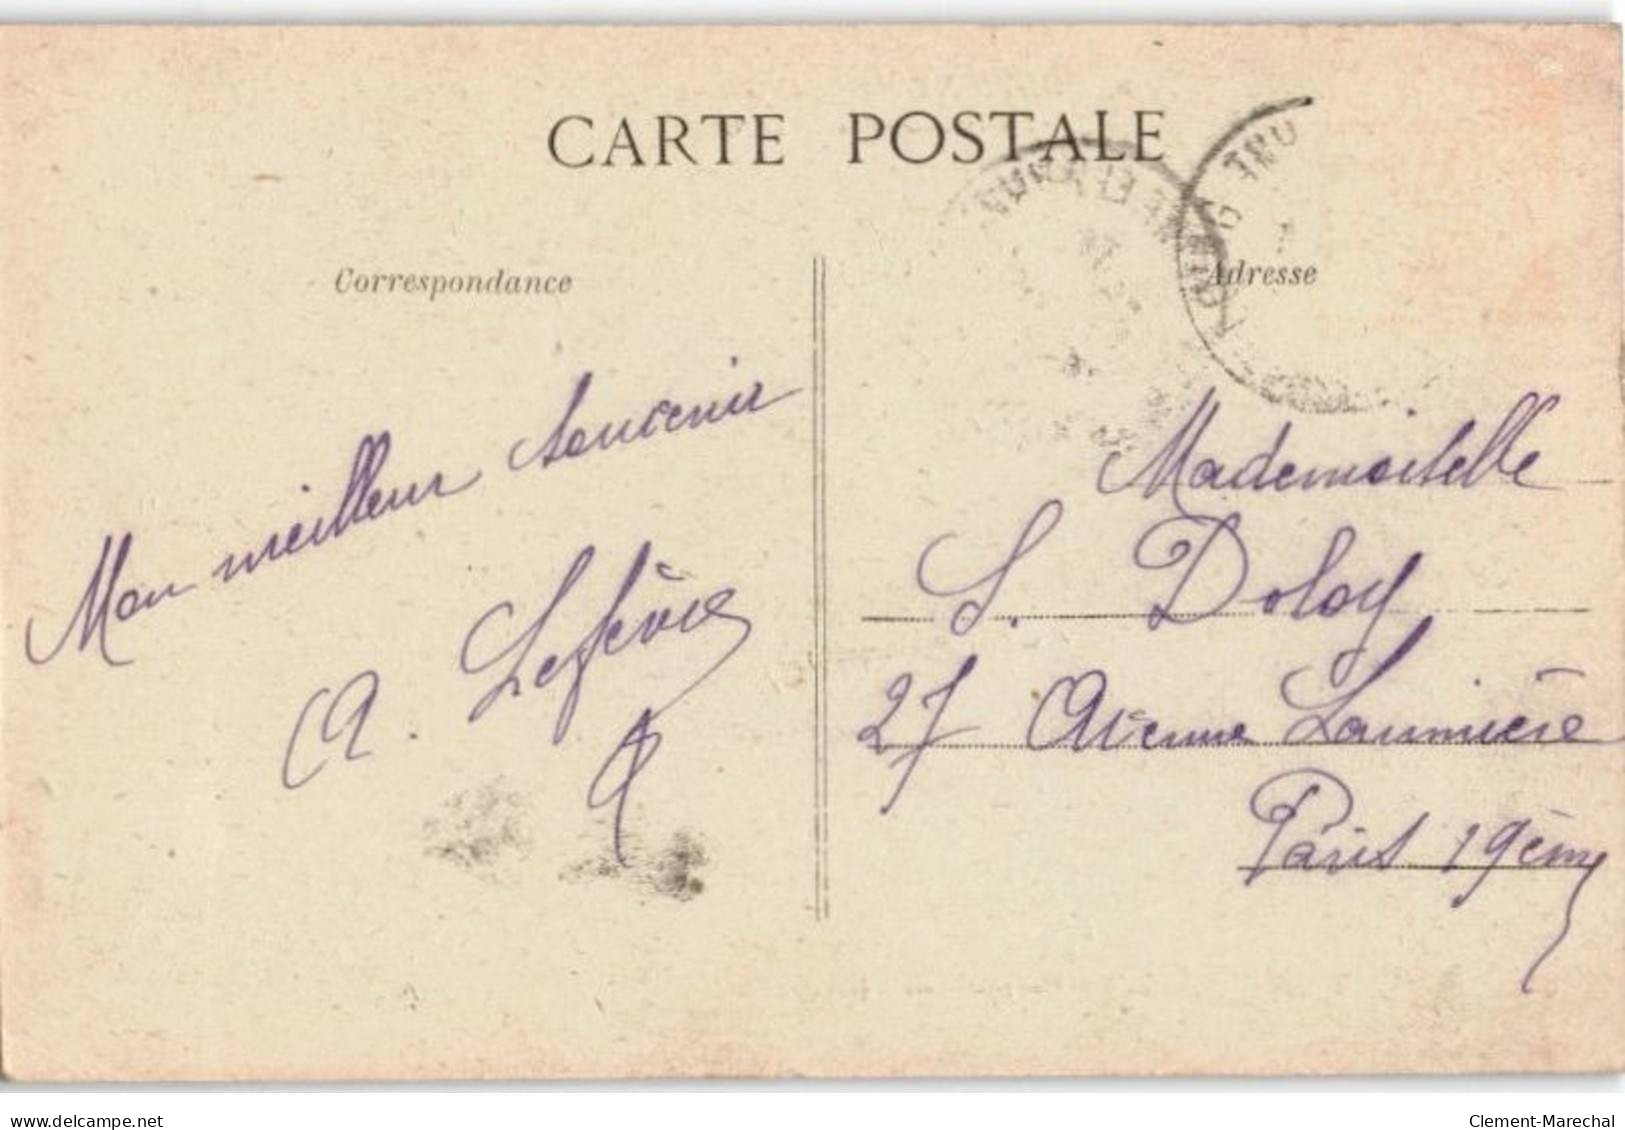 CARTE POSTALE
Correspondance
Adresse
Mon meilleur souvenir
A. Lefèvre
Mademoiselle
S. Doloy
27 Avenue Laumière
Paris 19ème
delcampe.net
Clement-Marechal